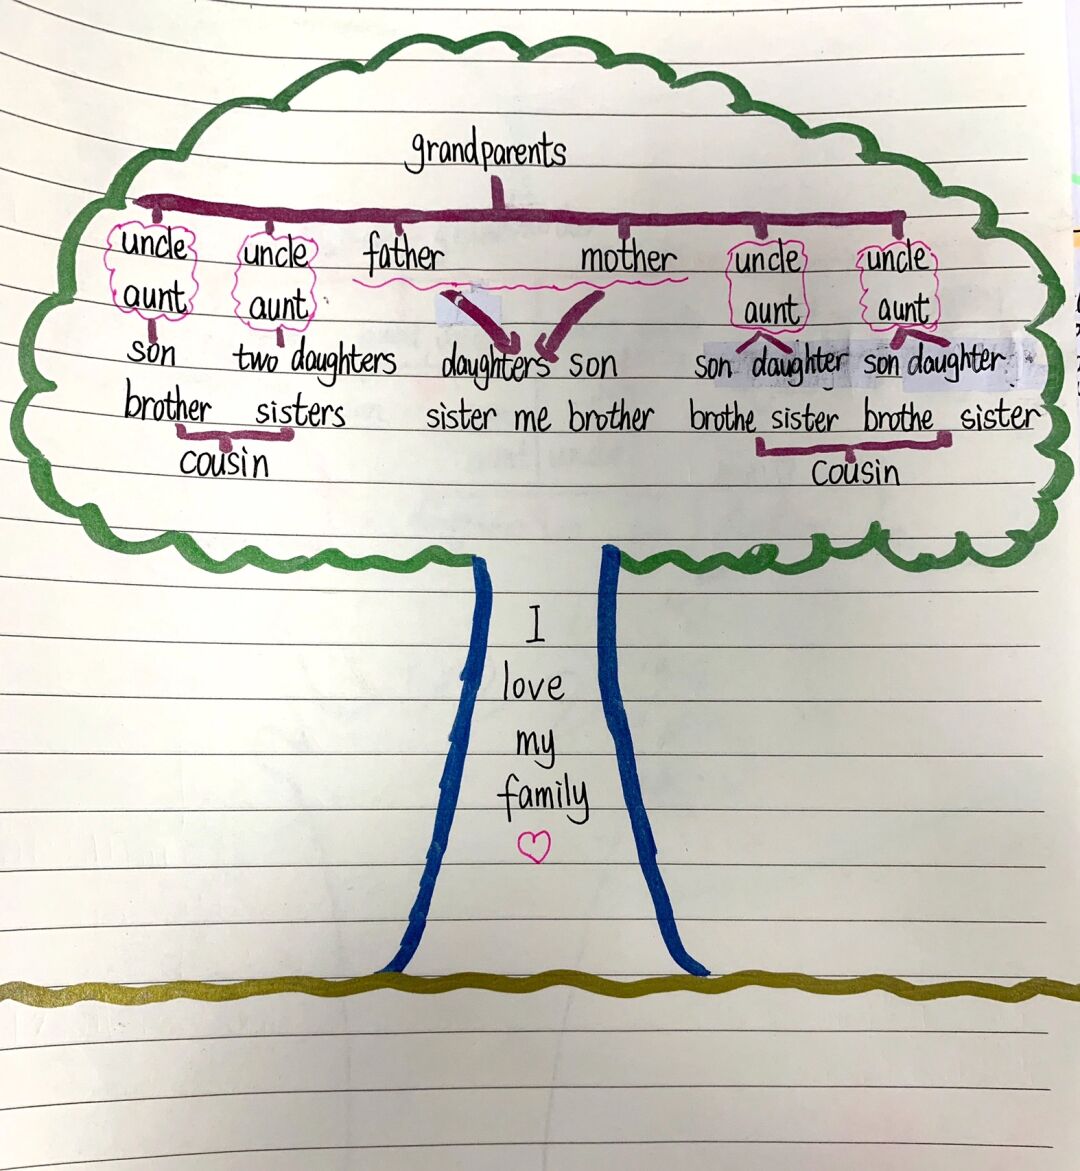 grandparents
uncle uncle father mother uncle uncle
aunt aunt aunt aunt
son two daughters daughters son son daughter son daughter
brother sisters sister me brother brothe sister brothe sister
cousin cousin
I
love
my
family